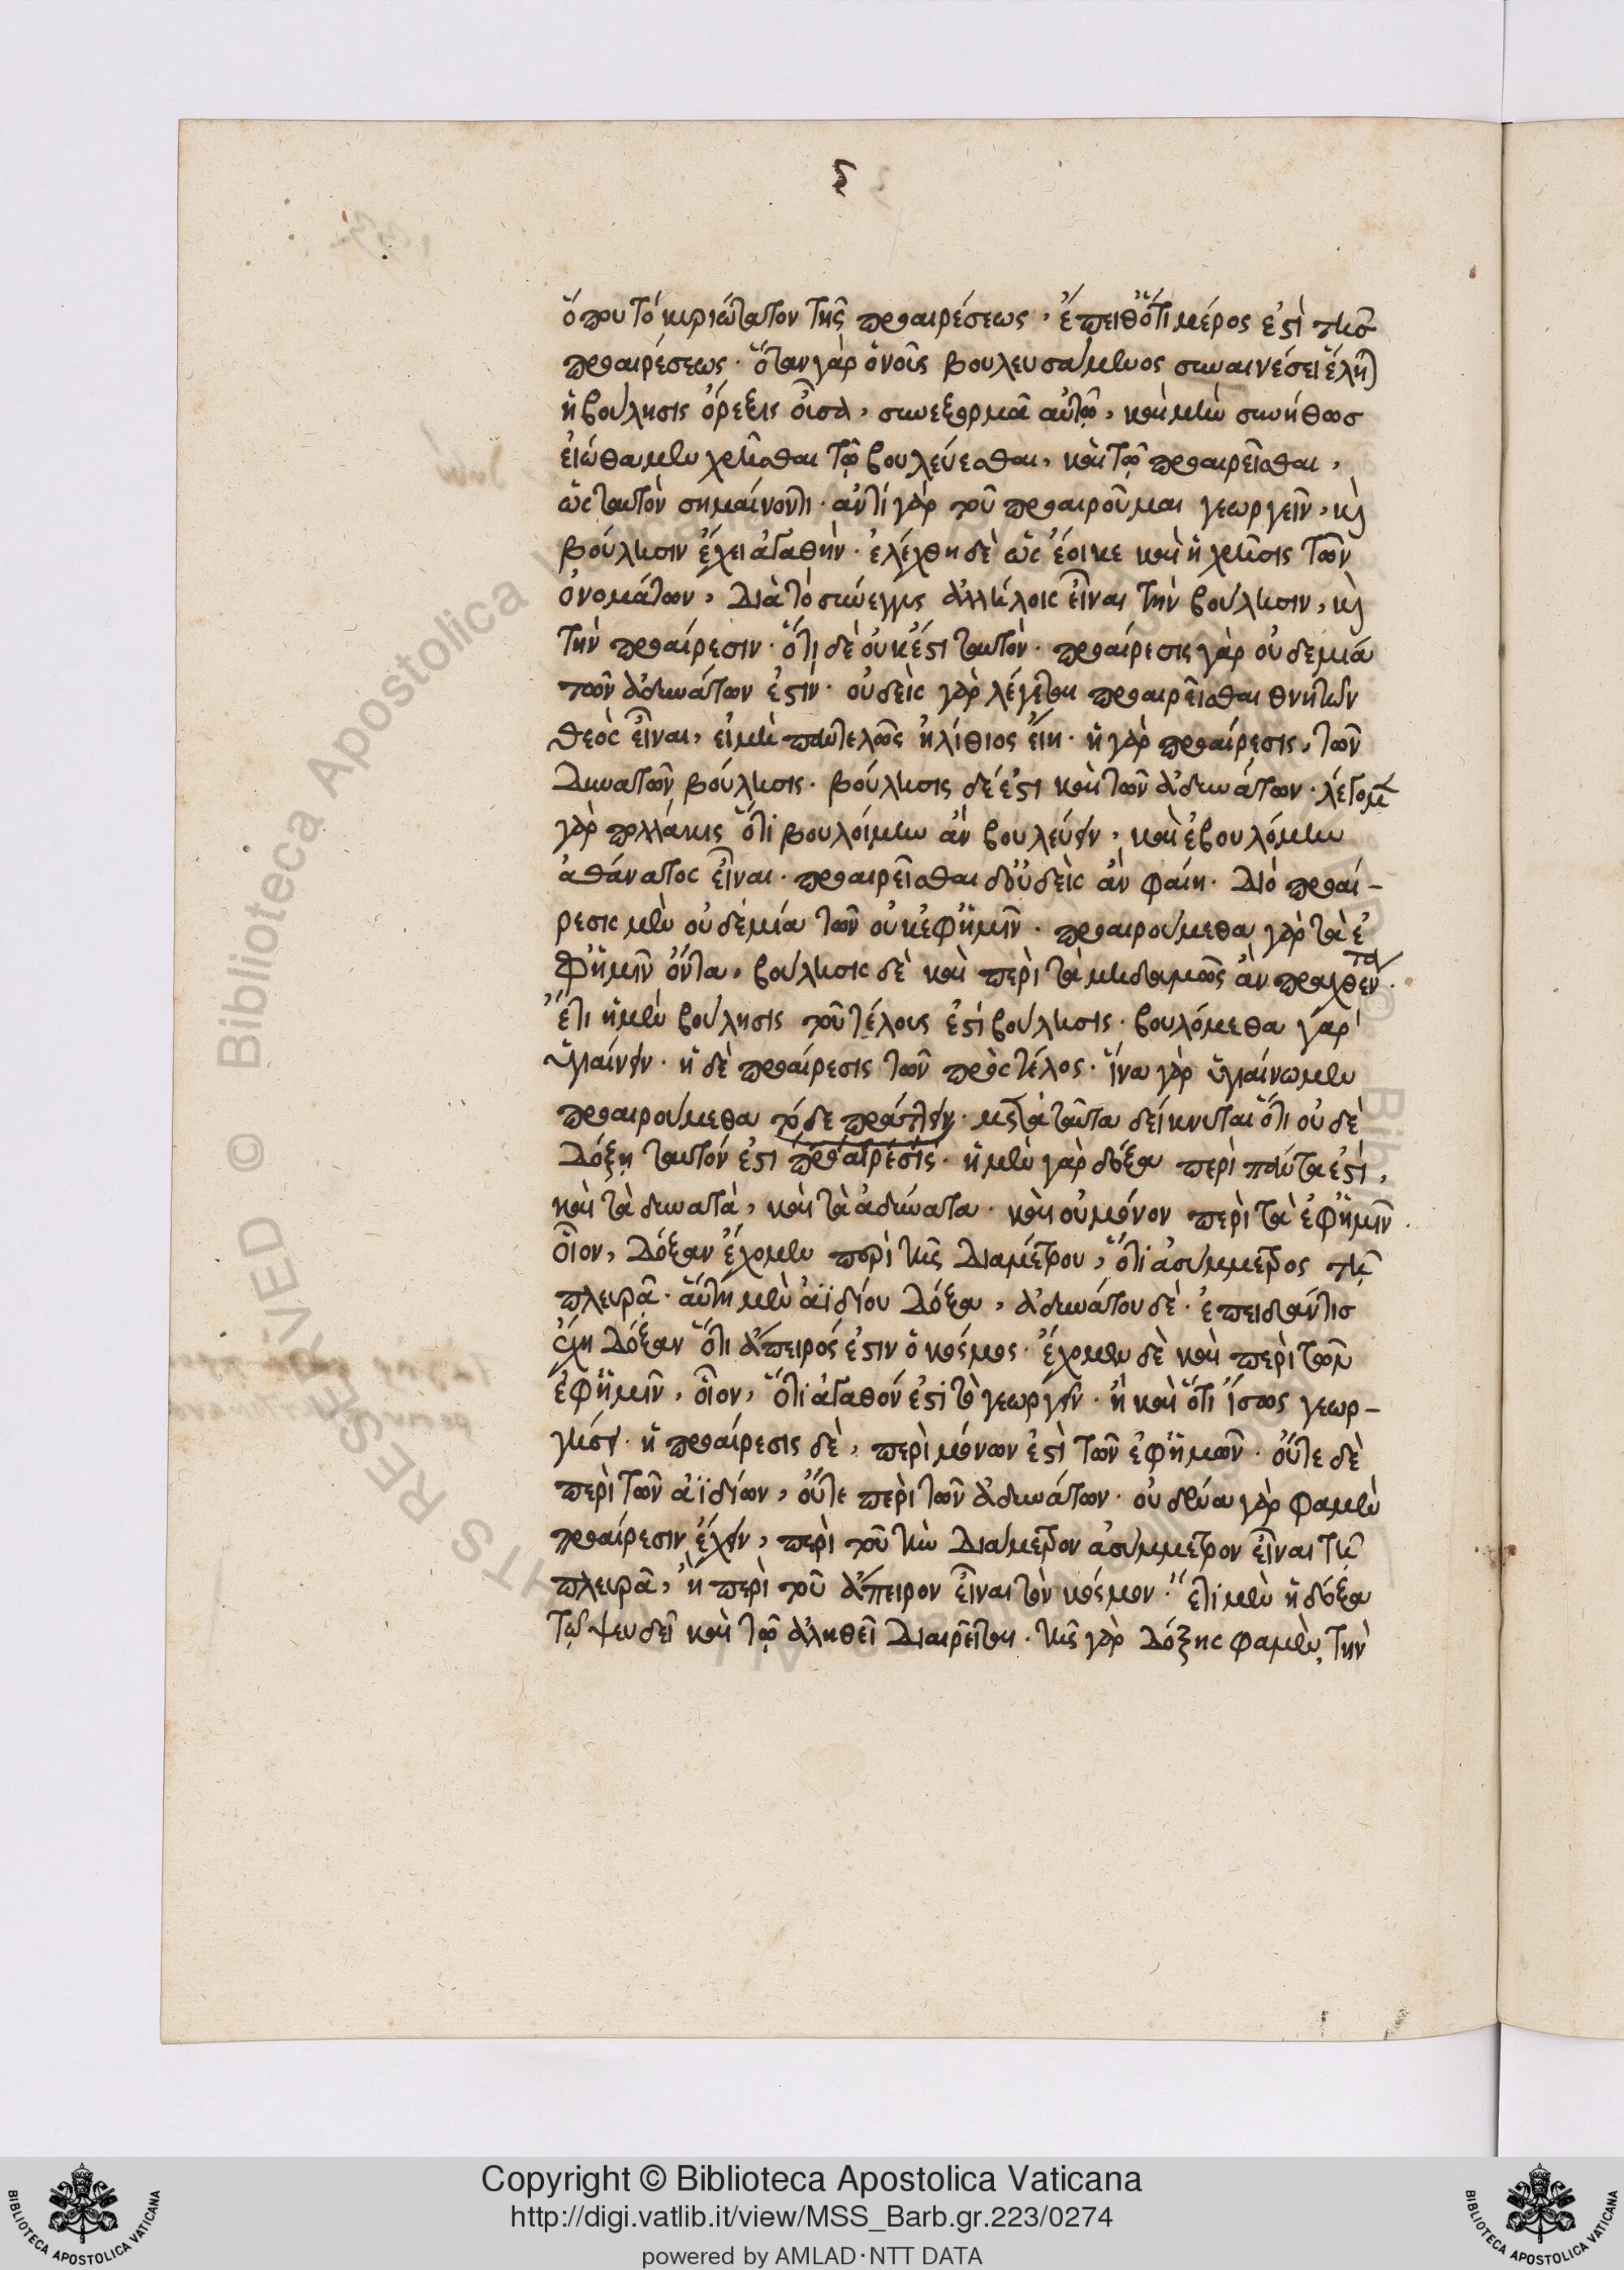 ϛ
ὅπου τὸ κυριώτατον τῆς προαιρέσεως, ἔπειθ' ὅτι μέρος ἐστὶ τῆς
προαιρέσεως· ὅταν γὰρ ὁ νοῦς βουλευσάμενος συναινέσει ἕλη)
ἡ βούλησις ὄρεξις οὖσα, συνεξορμᾶ αὐτῶ, καὶ μὴν συνήθως
εἰώθαμεν χρῆσθαι τῷ βουλεύεσθαι, καὶ τῷ προαιρεῖσθαι,
ὡς ταυτὸν σημαίνοντι· ἀντὶ γὰρ τοῦ προαιροῦμαι γεωργεῖν, κὶ
βούλησιν ἔχει ἀγαθὴν· ἐλέχθη δὲ ὡς ἔοικε καὶ ἡ χρῆσις τῶν
ὀνομάτων, διὰ τὸ σύνεγγυς ἀλλήλοις εἶναι τὴν βούλησιν, κὶ
τὴν προαίρεσιν· ὅτι δὲ οὐκ ἔστι ταυτὸν· προαίρεσις γὰρ οὐδεμία
τῶν ἀδυνάτων ἐστίν· οὐδεὶς γὰρ λέγεται προαιρεῖσθαι θνητῶν
θεὸς εἶναι, εἰ μὴ παντελῶς ἠλίθιος εἴη· ἡ γὰρ προαίρεσις, τῶν
δυνατῶν βούλησις· βούλησις δέ ἐστι καὶ τῶν ἀδυνάτων· λέγομεν
γὰρ πολλάκις ὅτι βουλοίμην ἂν βουλεύειν, καὶ ἐβουλόμην
ἀθάνατος εἶναι· προαιρεῖσθαι δ' οὐδεὶς ἂν φαίη· διὸ προαί-
ρεσις μὲν οὐδεμία τῶν οὐκ ἐφ' ἡμῖν· προαιρούμεθα γὰρ τὰ ἐ
φ' ἡμῖν ὄντα, βούλησις δὲ καὶ περὶ τὰ μηδαμῶς ἂν πραχθέντα·
ἔτι ἡ μὲν βούλησις τοῦ τέλους ἐστὶ βούλησις· βουλόμεθα γάρ
ὑγιαίνειν· ἡ δὲ προαίρεσις τῶν πρὸς τέλος· ἵνα γὰρ ὑγιαίνωμεν
προαιρούμεθα τόδε πράττειν· μετὰ ταῦτα δείκνυται ὅτι οὐδὲ
δόξη ταυτόν ἐστι προαίρεσις· ἡ μὲν γὰρ δόξα περὶ πάντα ἐστὶ,
καὶ τὰ δυνατὰ, καὶ τὰ ἀδύνατα· καὶ οὐ μόνον περὶ τὰ ἐφ' ἡμῖν·
οἷον, δόξαν ἔχομεν περὶ τῆς διαμέτρου, ὅτι ἀσύμμετρος τῆ
πλευρᾶ· αὕτη μὲν ἀϊδίου δόξα, ἀδυνάτου δὲ· ἐπειδάν τις
ἔχη δόξαν ὅτι ἄπειρός ἐστιν ὁ κόσμος· ἔχομεν δὲ καὶ περὶ τῶν
ἐφ' ἡμῖν, οἷον, ὅτι ἀγαθόν ἐστι τὸ γεωργεῖν· ἢ καὶ ὅτι ἴσως γεωρ-
γήσει· ἡ προαίρεσις δὲ, περὶ μόνων ἐστὶ τῶν ἐφ' ἡμῶν· οὔτε δὲ
περὶ τῶν ἀϊδίων, οὔτε περὶ τῶν ἀδυνάτων· οὐδένα γὰρ φαμὲν
προαίρεσιν ἔχειν, περὶ τοῦ τὴν διάμετρον ἀσύμμετρον εἶναι τῆ
πλευρᾶ, ἢ περὶ τοῦ ἄπειρον εἶναι τὸν κόσμον· ἔτι μὲν ἡ δόξα
τῷ ψευδεῖ καὶ τῷ ἀληθεῖ διαιρεῖται· τῆς γὰρ δόξης φαμὲν, τὴν
Copyright © Biblioteca Apostolica Vaticana
http://digi.vatlib.it/view/MSS_Barb.gr.223/0274
powered by AMLAD·NTT DATA